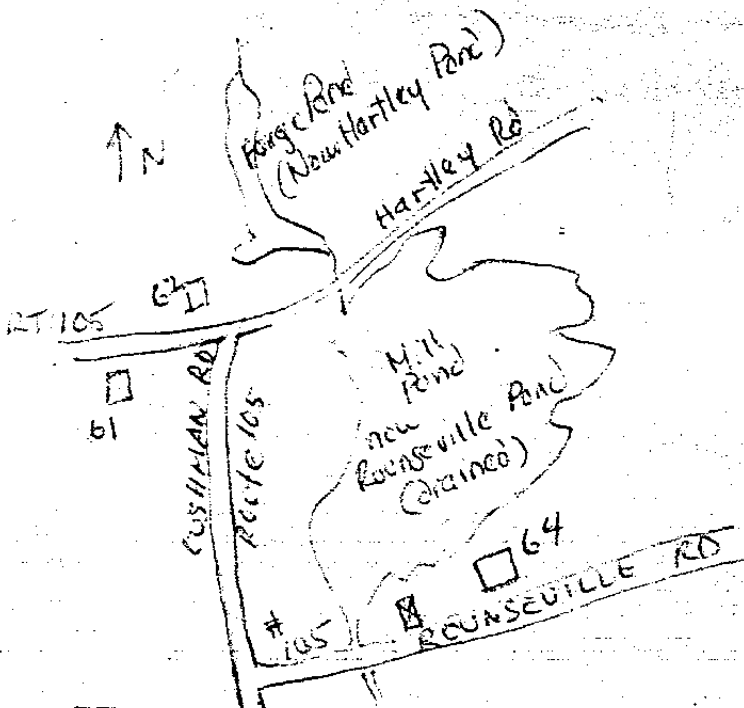 Forge Pond
(Now Hartley Pond)
N
Hartley Rd
62
RT 105
61
CUSHMAN RD
ROUTE 105
Mill
Pond
now
Rounseville Pond
(drained)
64
ROUNSEVILLE RD
#
105